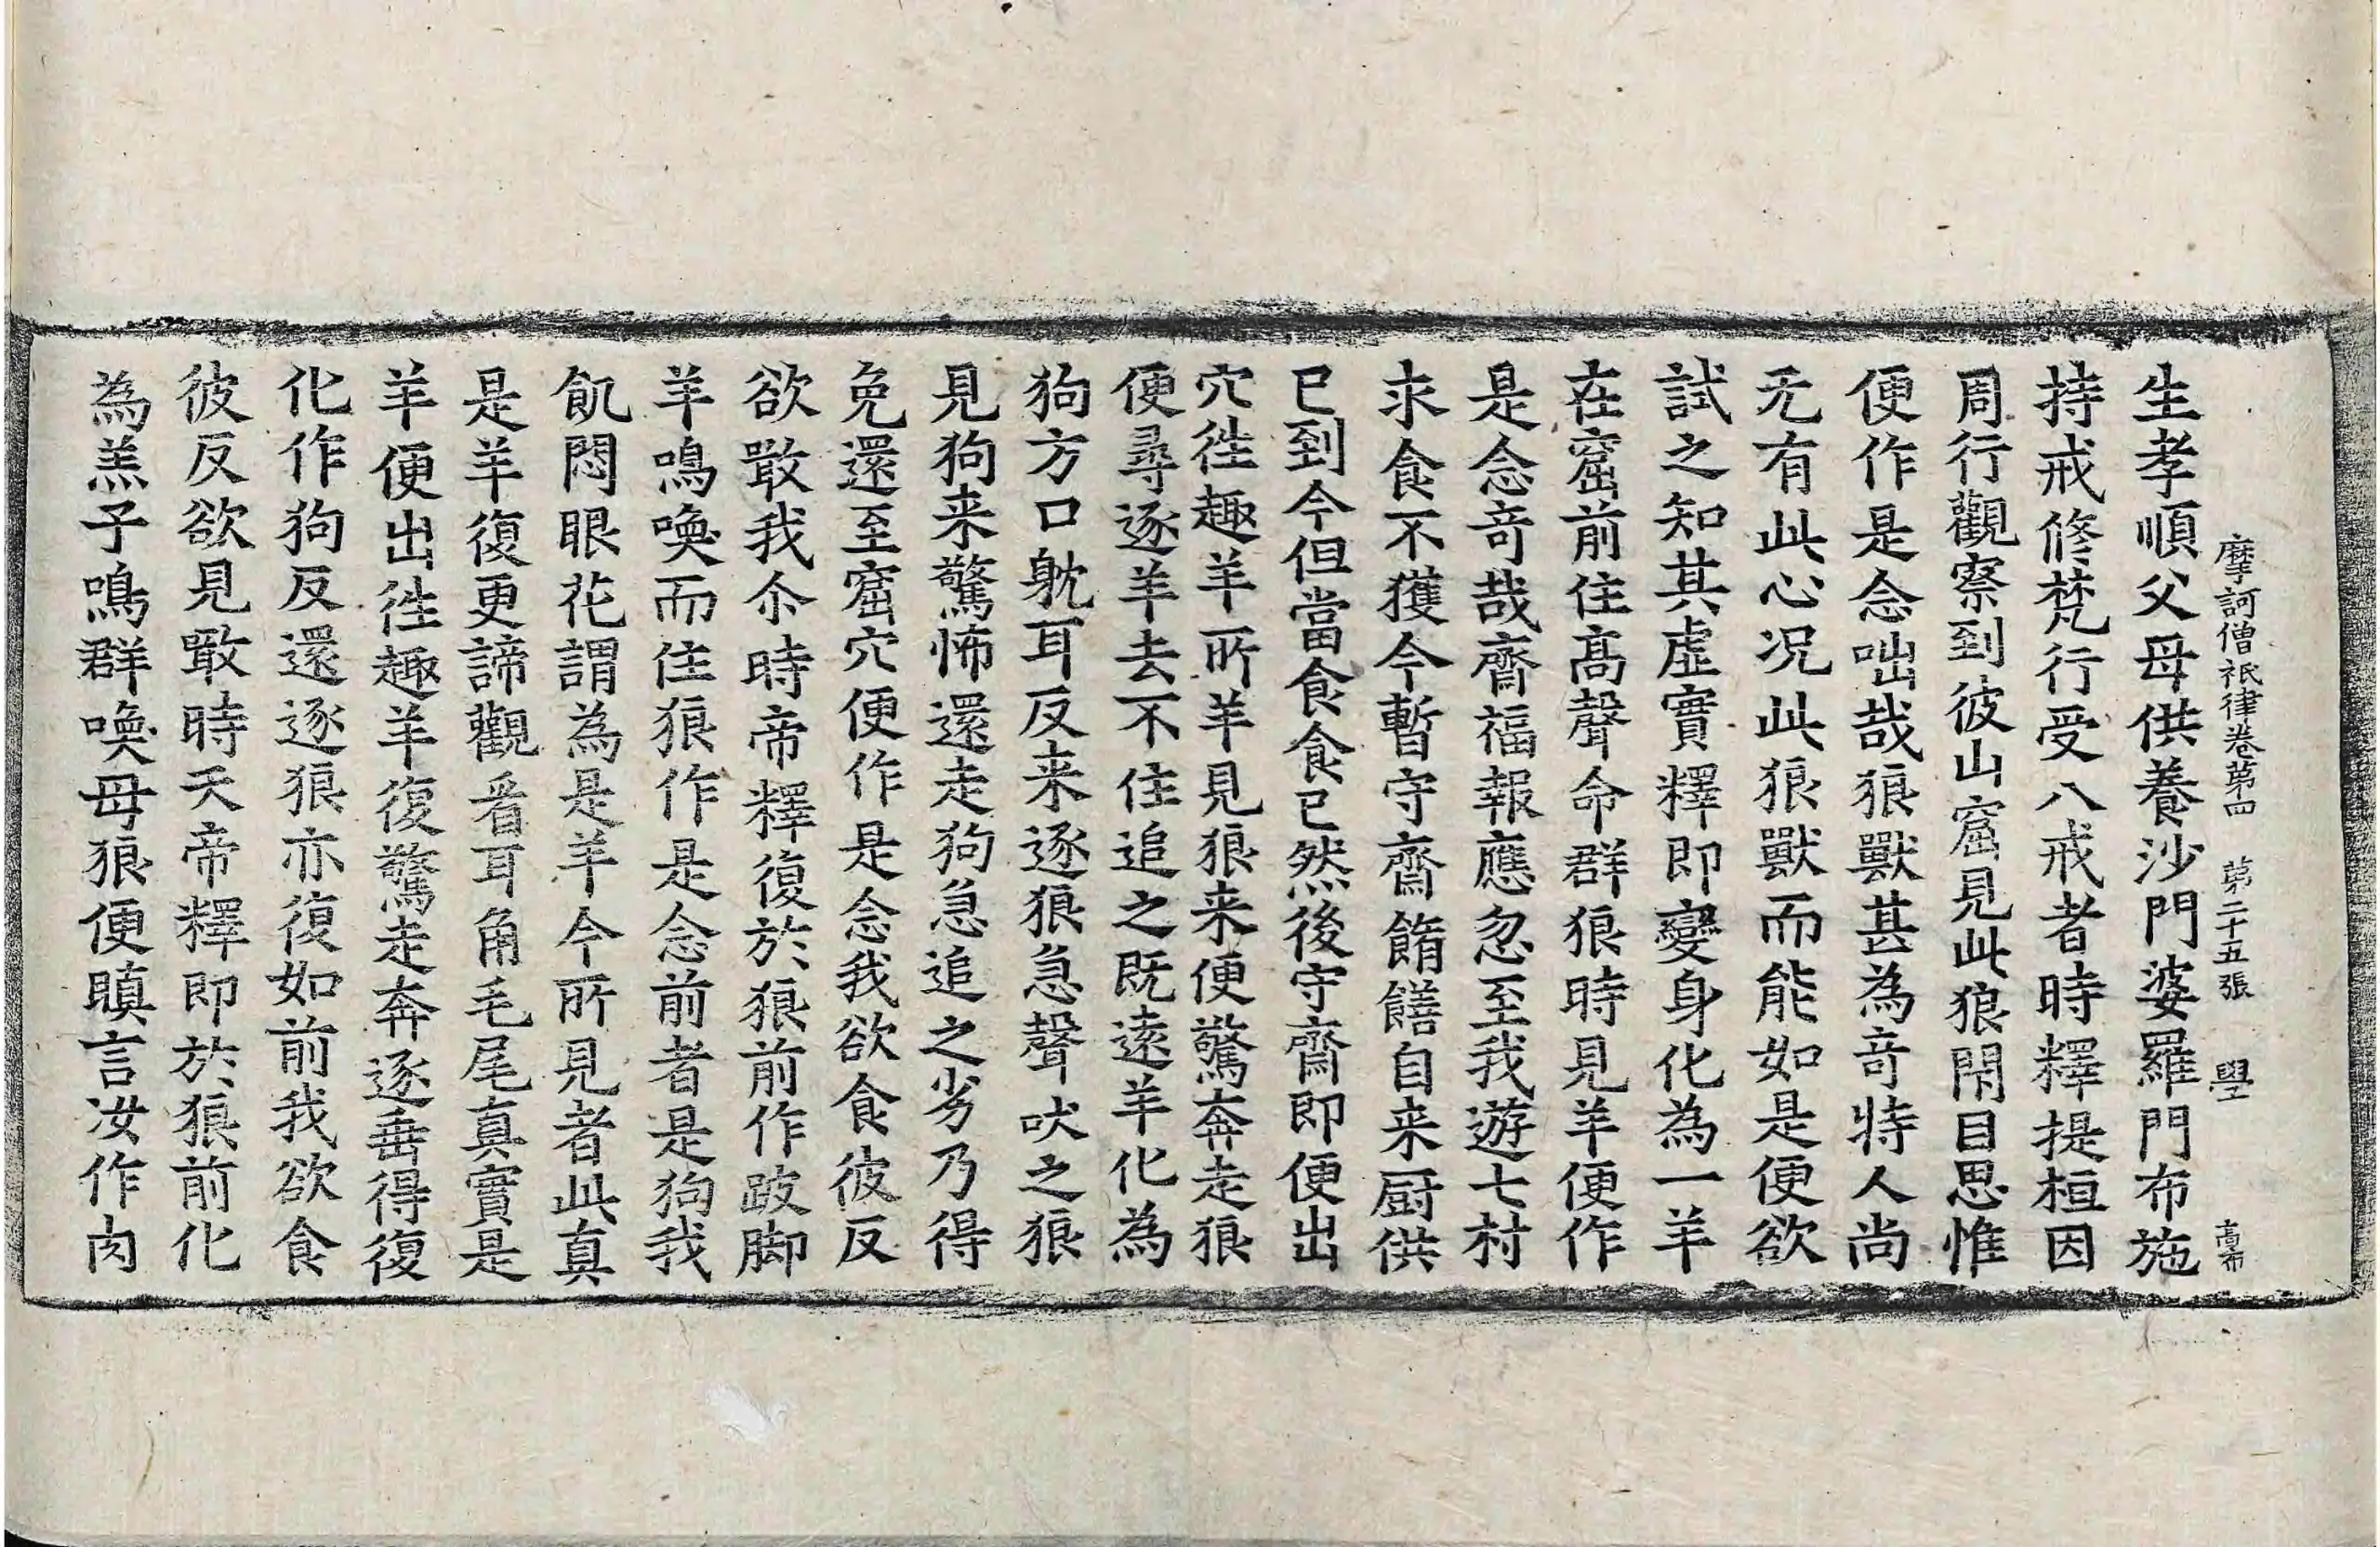 摩訶僧祇律卷第四 第二十五張 學
生孝順父母供養沙門婆羅門布施
持戒修梵行受八戒者時釋提桓因
周行觀察到彼山窟見此狼閇目思惟
便作是念咄哉狼獸甚為奇特人尚
无有此心况此狼獸而能如是便欲
試之知其虛實釋即變身化為一羊
在窟前住髙聲命群狼時見羊便作
是念奇哉齋福報應忽至我遊七村
求食不獲今暫守齋餚饍自来厨供
已到今但當食食已然後守齋即便出
穴徃趣羊所羊見狼来便驚奔走狼
便尋逐羊去不住追之既逺羊化為
狗方口躭耳反来逐狼急聲吠之狼
見狗来驚怖還走狗急追之劣乃得
免還至窟穴便作是念我欲食彼反
欲噉我尒時帝釋復於狼前作跛脚
羊鳴喚而住狼作是念前者是狗我
飢悶眼花謂為是羊今所見者此真
是羊復更諦觀看耳角毛尾真實是
羊便出徃趣羊復驚走奔逐垂得復
化作狗反還逐狼亦復如前我欲食
彼反欲見噉時天帝釋即於狼前化
為羔子鳴群喚母狼便瞋言汝作肉